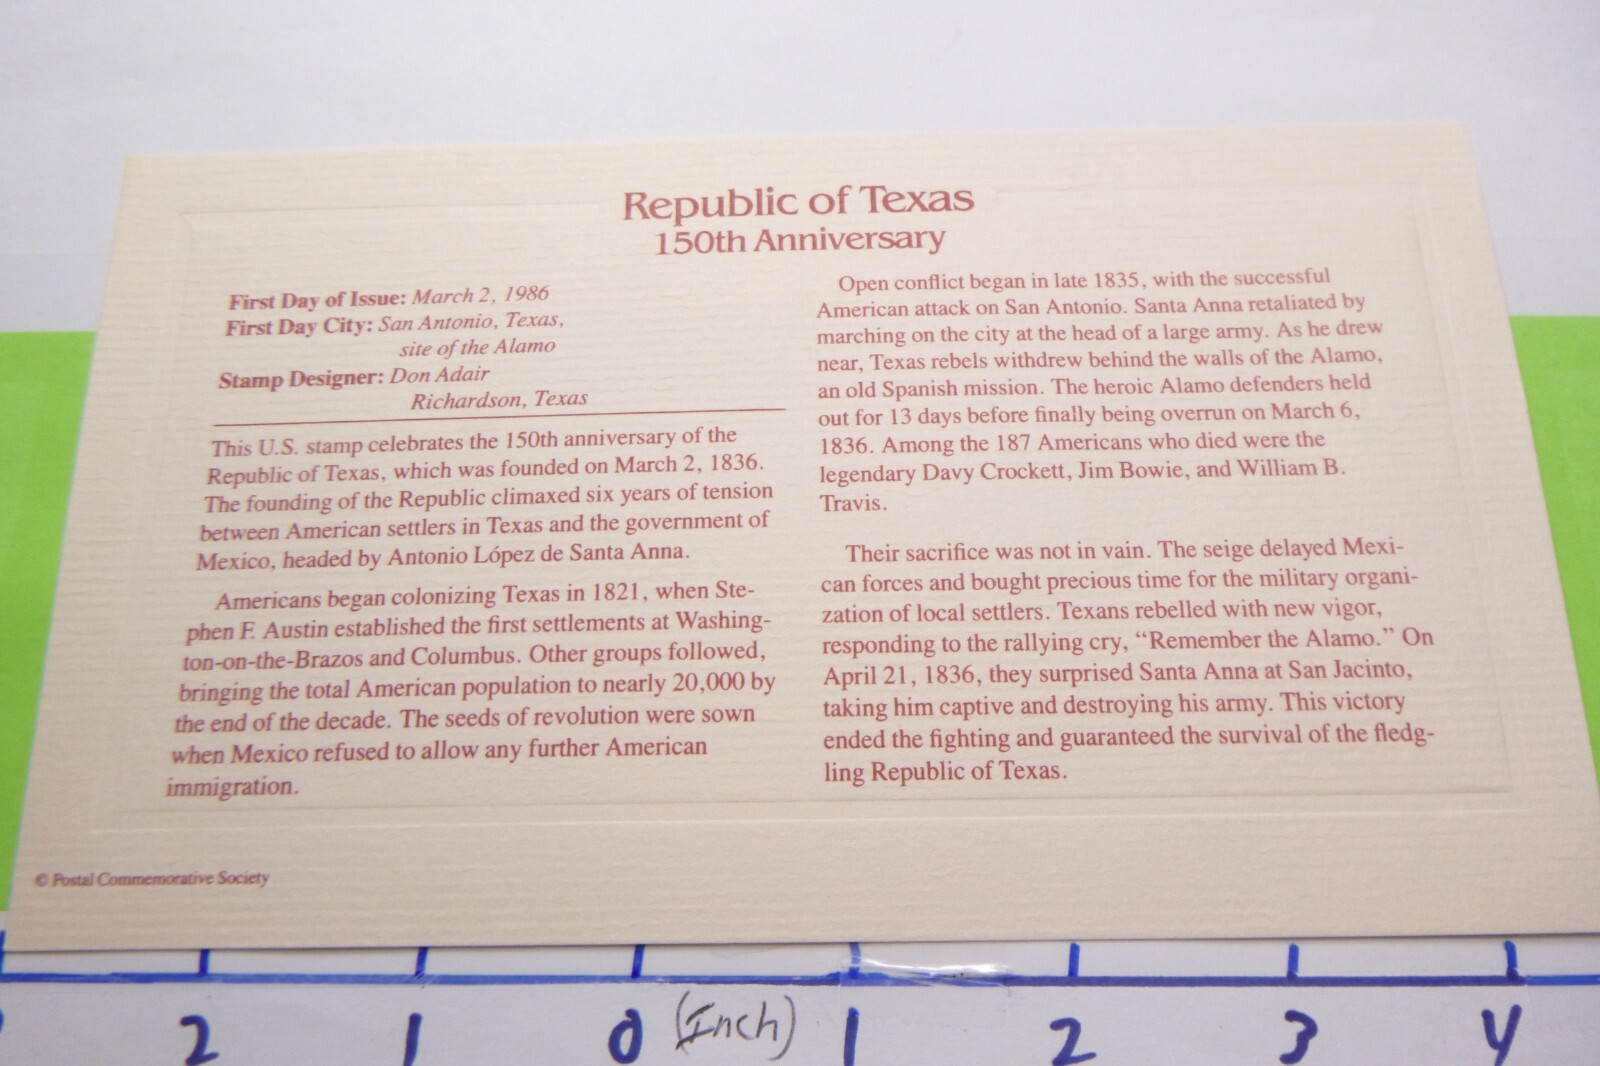 Republic of Texas
150th Anniversary
First Day of Issue: March 2, 1986
First Day City: San Antonio, Texas,
site of the Alamo
Stamp Designer: Don Adair
Richardson, Texas
This U.S. stamp celebrates the 150th anniversary of the
Republic of Texas, which was founded on March 2, 1836.
The founding of the Republic climaxed six years of tension
between American settlers in Texas and the government of
Mexico, headed by Antonio López de Santa Anna.
Americans began colonizing Texas in 1821, when Ste-
phen F. Austin established the first settlements at Washing-
ton-on-the-Brazos and Columbus. Other groups followed,
bringing the total American population to nearly 20,000 by
the end of the decade. The seeds of revolution were sown
when Mexico refused to allow any further American
immigration.
Open conflict began in late 1835, with the successful
American attack on San Antonio. Santa Anna retaliated by
marching on the city at the head of a large army. As he drew
near, Texas rebels withdrew behind the walls of the Alamo,
an old Spanish mission. The heroic Alamo defenders held
out for 13 days before finally being overrun on March 6,
1836. Among the 187 Americans who died were the
legendary Davy Crockett, Jim Bowie, and William B.
Travis.
Their sacrifice was not in vain. The seige delayed Mexi-
can forces and bought precious time for the military organi-
zation of local settlers. Texans rebelled with new vigor,
responding to the rallying cry, “Remember the Alamo.” On
April 21, 1836, they surprised Santa Anna at San Jacinto,
taking him captive and destroying his army. This victory
ended the fighting and guaranteed the survival of the fledg-
ling Republic of Texas.
© Postal Commemorative Society
2 1 0 (Inch) 1 2 3 4